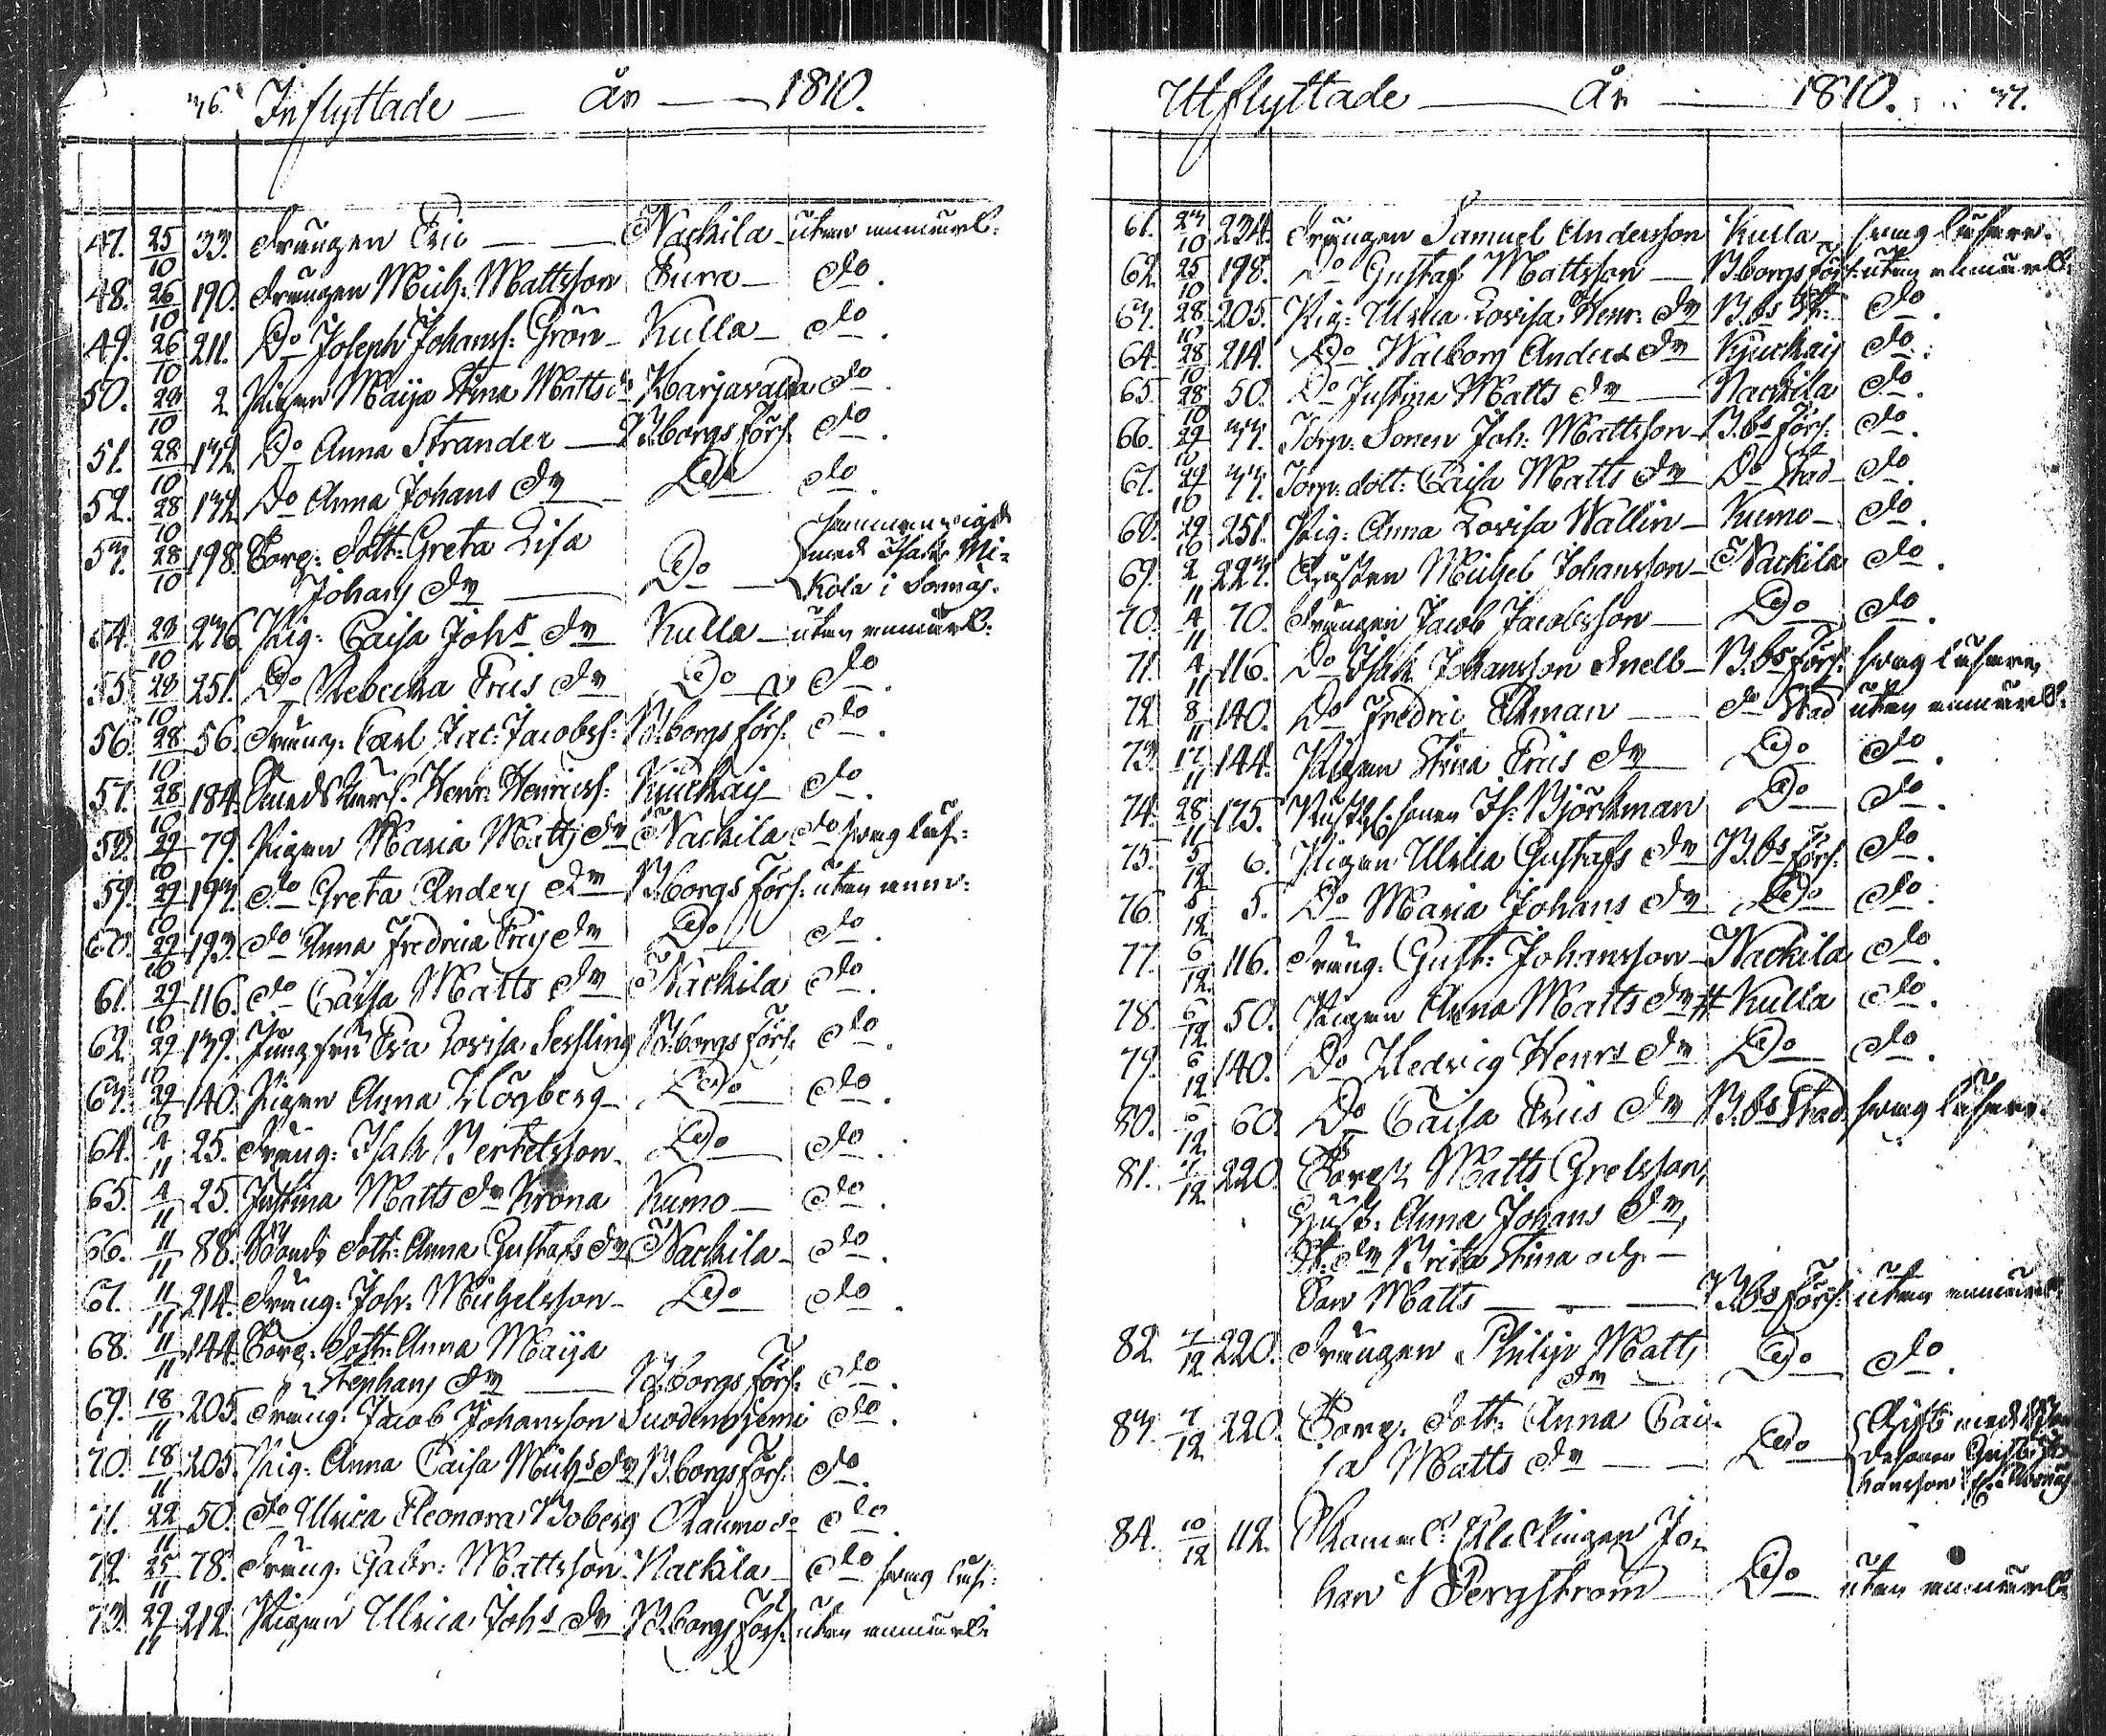 36. Inflyttade — år — 1810.
47. 25/10 33. Drängen Eric — Nackila — utan anmärk:
48. 26/10 190. Drängen Mich: Mattsson Eura — do.
49. 26/10 211. Do Joseph Johanss: Grön — Kulla — do.
50. 28/10 2. Pigan Maija Stina Matts dr Harjavalda do.
51. 28/10 132. Do Anna Strander — B:borgs förs: do.
52. 28/10 132. Do Anna Johans dr — Do — do.
53. 28/10 198. Torp: dott: Greta Lisa
Johans dr — Do — sammanvigd
med Isak Mi-
kola i Sonnäs.
54. 28/10 236. Pig: Caisa Johs dr Kulla — utan anmärk:
55. 28/10 251. Do Rebecka Erics dr Do do.
56. 28/10 56. Dräng: Carl Jac: Jacobss: B:borgs förs: do.
57. 28/10 184. Henr: Henricss: Kjuckais do.
58. 29/10 79. Pigan Maria Matts dr Nackila do svag läs:
59. 29/10 193. do Greta Anders dr B:borgs förs: utan anm:
60. 29/10 193. do Anna Fredrica Erics dr Do do.
61. 29/10 116. do Caisa Matts dr Nackila do.
62. 29/10 139. Jungfru Eva Lovisa Sessling B:borgs förs: do.
63. 29/10 140. Pigan Anna Högberg — Do do.
64. 4/11 25. Dräng: Isak Bertelsson — Do do.
65. 4/11 25. Justina Matts dr Krona Kumo — do.
66. 11/11 88. Bonde dott: Anna Gustafs dr Nackila — do.
67. 11/11 214. Dräng: Joh: Michelsson — Do do.
68. 11/11 144. Torp: dott: Anna Maija
Stephans dr — B:borgs förs: do.
69. 18/11 205. Dräng: Jacob Johansson Suodenniemi do.
70. 18/11 205. Pig: Anna Caisa Michs dr B:borgs förs: do.
71. 22/11 50. do Ulrica Eleonora Boberg Raumo do.
72. 25/11 78. Dräng: Gabr: Mattsson Nackila — do svag läs:
73. 29/11 212. Pigan Ulrica Johs dr B:borgs förs: utan anmärk:
Utflyttade — År — 1810. 37.
61. 23/10 234. Drängen Samuel Andersson Kulla — svag läsare.
62. 25/10 198. Do Gustaf Mattsson — B:borgs förs: utan anmärk:
63. 28/10 205. Pig: Ulrica Lovisa Henr: dr B:bs do.
64. 28/10 214. Do Walborg Anders dr Kjuckais do.
65. 28/10 50. Do Justina Matts dr — Nackila do.
66. 29/10 77. Torp: Sonen Joh: Mattsson — B:bs förs: do.
67. 29/10 77. Torp: dott: Caisa Matts dr Do Stad do.
68. 29/10 251. Pig: Anna Lovisa Wallin — Kumo — do.
69. 2/11 223. Michel Johansson — Nackila do.
70. 4/11 70. Drängen Jacob Jacobsson — Do do.
71. 4/11 116. Do Isak Johansson Snell — B:bs förs: svag läsare,
72. 8/11 140. Do Fredric Ekman — do Stad utan anmärk:
73. 17/11 144. Pigan Stina Erics dr — Do do.
74. 28/11 175. Rusth: sonen Is: Björkman Do do.
75. 5/12 6. Pigan Ulrica Gustafs dr B:bs förs: do.
76. 5/12 5. Do Maria Johans dr — Do do.
77. 6/12 116. Dräng: Gust: Johansson — Nackila do.
78. 6/12 50. Pigan Anna Matts dr # Kulla do.
79. 6/12 140. Do Hedvig Henrs dr Do do.
80. 6/12 60. Do Caisa Erics dr B:bs Stad svag läsare.
81. 7/12 220. Torp: Matts Grelsson,
Hust: Anna Johans dr,
dr Brita Stina och —
Son Matts — B:bs förs: utan anmärk:
82. 7/12 220. Drängen Philip Matts
dr — Do do.
83. 7/12 220. Torp: dott: Anna Cai-
sa Matts dr — Do Gift med
sonen Gust: Jo-
hansson
84. 10/12 112. Jo-
han Bergström — Do utan anmärk: